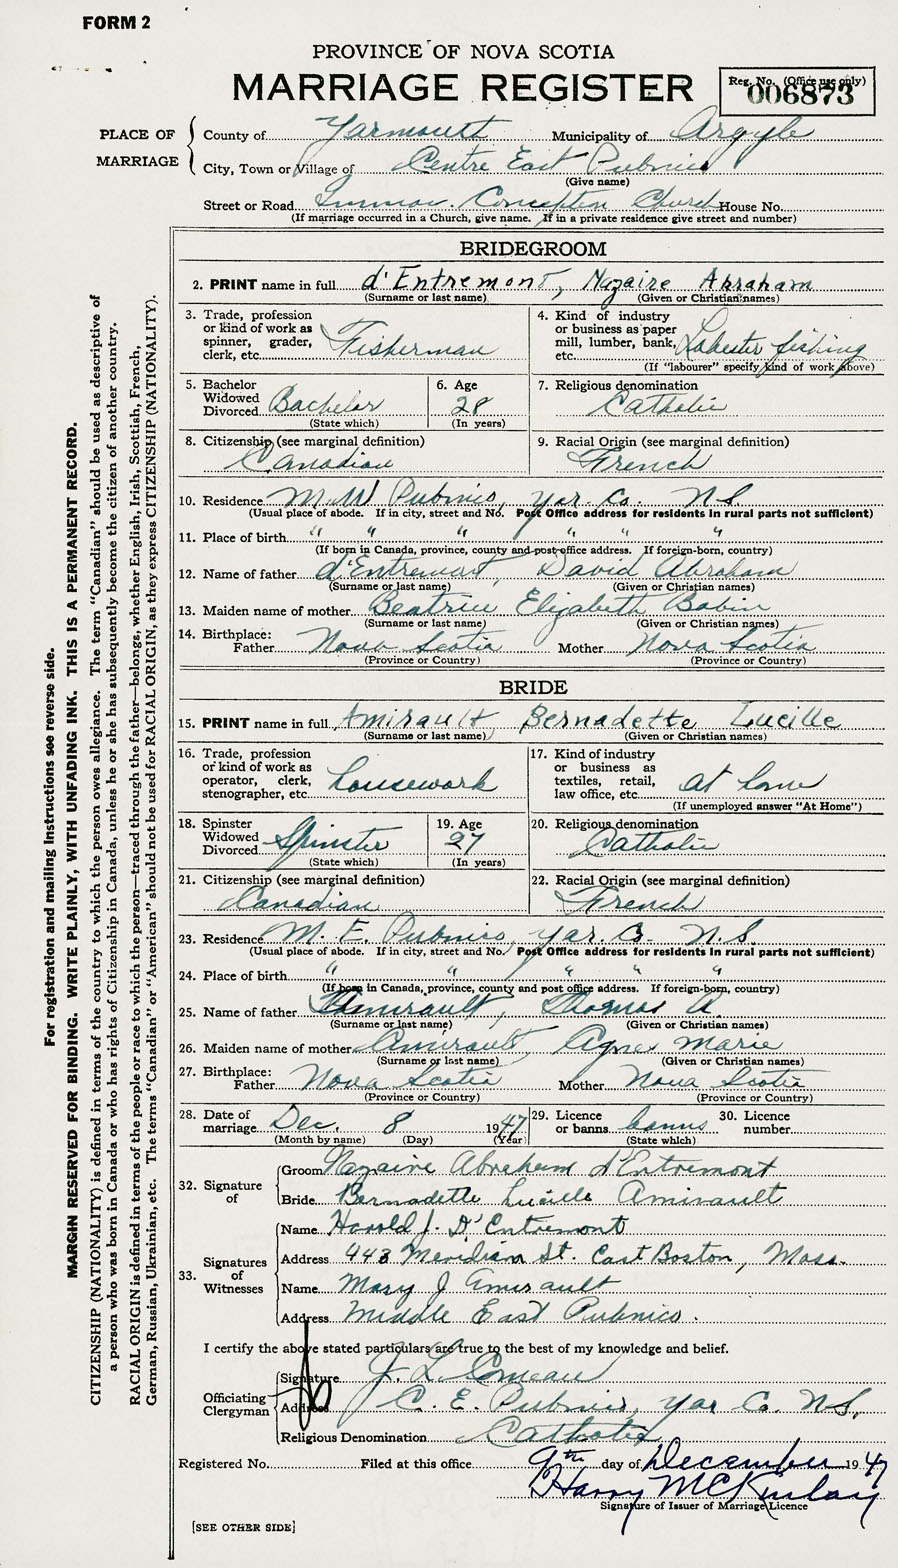 FORM 2
PROVINCE OF NOVA SCOTIA
MARRIAGE REGISTER
Reg. No. (Office use only)
006873
PLACE OF MARRIAGE
County of Yarmouth Municipality of Argyle
City, Town or Village of Centre East Pubnico
(Give name)
Street or Road Immac. Conception Church House No.
(If marriage occurred in a Church, give name. If in a private residence give street and number)
BRIDEGROOM
2. PRINT name in full d'Entremont, Nazaire Abraham
(Surname or last name) (Given or Christian names)
3. Trade, profession or kind of work as spinner, grader, clerk, etc. Fisherman
4. Kind of industry or business as paper mill, lumber, bank, etc. Lobster fishing
(If "labourer" specify kind of work above)
5. Bachelor Widowed Divorced Bachelor
(State which)
6. Age 28
(In years)
7. Religious denomination Catholic
8. Citizenship (see marginal definition) Canadian
9. Racial Origin (see marginal definition) French
10. Residence M. W Pubnico, Yar. Co. N.S.
(Usual place of abode. If in city, street and No. Post Office address for residents in rural parts not sufficient)
11. Place of birth " " " " " "
(If born in Canada, province, county and post-office address. If foreign-born, country)
12. Name of father d'Entremont, David Abraham
(Surname or last name) (Given or Christian names)
13. Maiden name of mother Beatrice Elizabeth Babin
(Surname or last name) (Given or Christian names)
14. Birthplace: Father Nova Scotia Mother Nova Scotia
(Province or Country) (Province or Country)
BRIDE
15. PRINT name in full Amirault Bernadette Lucille
(Surname or last name) (Given or Christian names)
16. Trade, profession or kind of work as operator, clerk, stenographer, etc. housework
17. Kind of industry or business as textiles, retail, law office, etc. at home
(If unemployed answer "At Home")
18. Spinster Widowed Divorced Spinster
(State which)
19. Age 27
(In years)
20. Religious denomination Catholic
21. Citizenship (see marginal definition) Canadian
22. Racial Origin (see marginal definition) French
23. Residence M. E. Pubnico, Yar. Co. N.S.
(Usual place of abode. If in city, street and No. Post Office address for residents in rural parts not sufficient)
24. Place of birth " " " " "
(If born in Canada, province, county and post office address. If foreign-born, country)
25. Name of father Amirault, Thomas A.
(Surname or last name) (Given or Christian names)
26. Maiden name of mother Amirault, Agnes Marie
(Surname or last name) (Given or Christian names)
27. Birthplace: Father Nova Scotia Mother Nova Scotia
(Province or Country) (Province or Country)
28. Date of marriage Dec. 8 1947
(Month by name) (Day) (Year)
29. Licence or banns banns
(State which)
30. Licence number
32. Signature of
Groom Nazaire Abraham d'Entremont
Bride Bernadette Lucille Amirault
33. Signatures of Witnesses
Name Harold J. D'Entremont
Address 443 Meridian St. East Boston, Mass.
Name Mary J Amirault
Address Middle East Pubnico.
I certify the above stated particulars are true to the best of my knowledge and belief.
Officiating Clergyman
Signature J. L. Comeau
Address C. E. Pubnico, Yar Co. N.S.
Religious Denomination Catholic
Registered No. Filed at this office 9th day of December 1947
Harry McKinlay
Signature of Issuer of Marriage Licence
[SEE OTHER SIDE]
For registration and mailing instructions see reverse side.
MARGIN RESERVED FOR BINDING. WRITE PLAINLY, WITH UNFADING INK. THIS IS A PERMANENT RECORD.
CITIZENSHIP (NATIONALITY) is defined in terms of the country to which the person owes allegiance. The term "Canadian" should be used as descriptive of
a person who was born in Canada or who has rights of Citizenship in Canada, unless he or she has subsequently become the citizen of another country.
RACIAL ORIGIN is defined in terms of the people or race to which the person—traced through the father—belongs, whether English, Irish, Scottish, French,
German, Russian, Ukrainian, etc. The terms "Canadian" or "American" should not be used for RACIAL ORIGIN, as they express CITIZENSHIP (NATIONALITY).